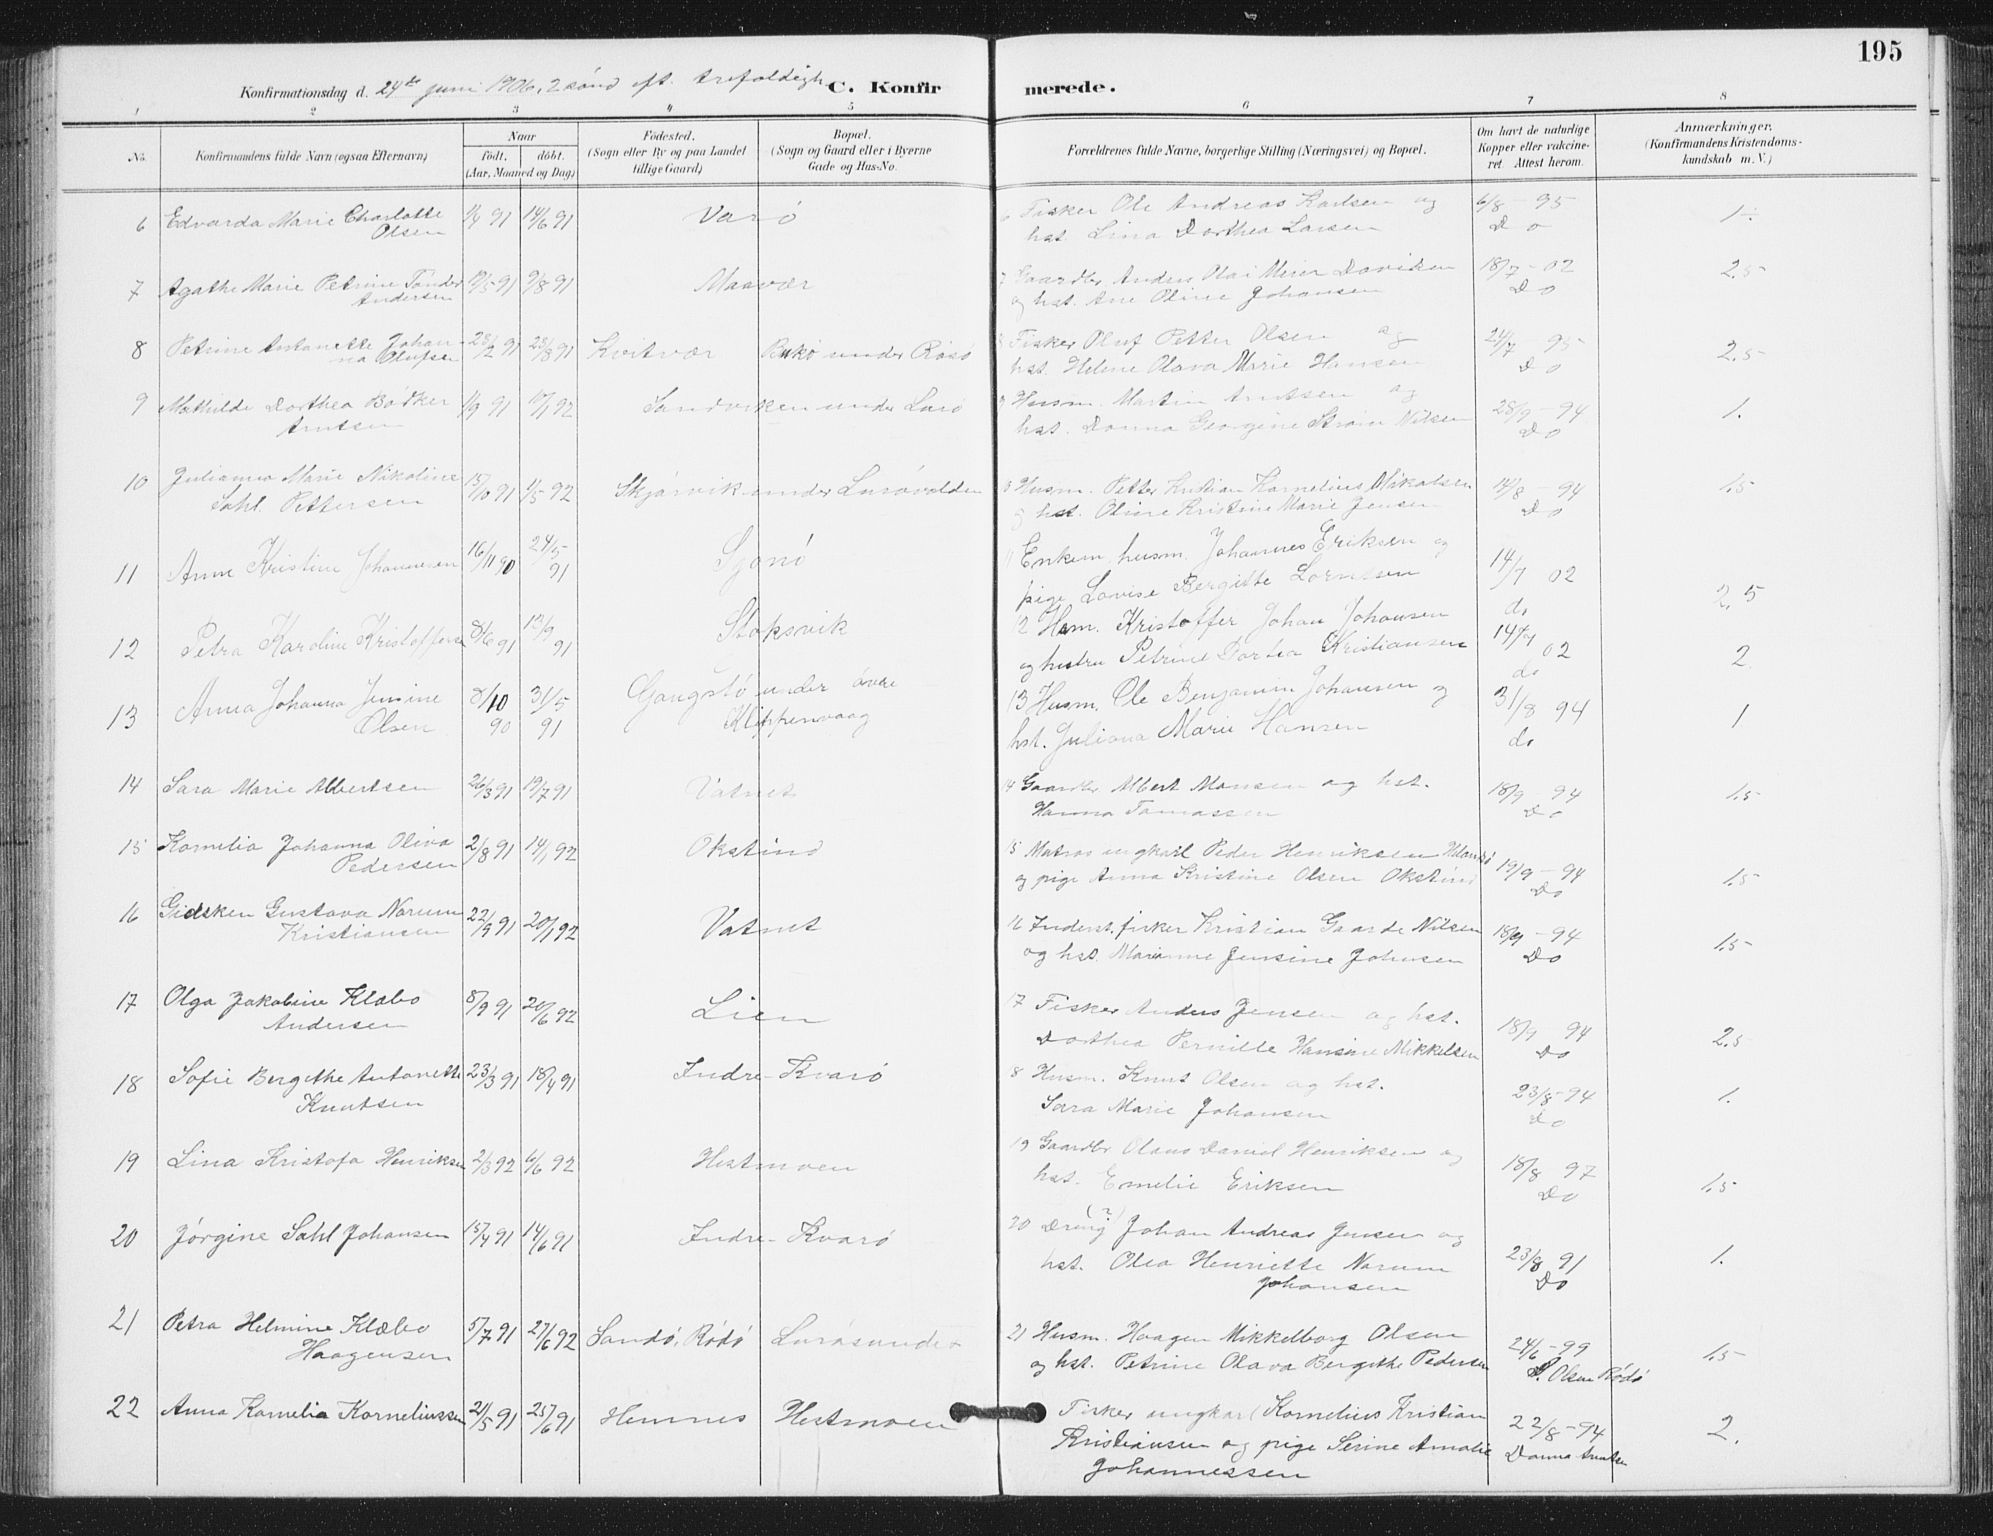 195
Konfirmationsdag d. 24de juni 1906, 2 sønd eft. trefoldigh. C. Konfirmerede.
1 2 3 4 5 6 7 8
No. Konfirmandens fulde Navn (ogsaa Efternavn)
Naar
født. døbt.
(Aar, Maaned og Dag)
Fødested.
(Sogn eller By og paa Landet
tillige Gaard)
Bopæl.
(Sogn og Gaard eller i Byerne
Gade og Hus-No.
Forældrenes fulde Navne, borgerlige Stilling (Næringsvei) og Bopæl.
Om havt de naturlige
Kopper eller vaccine-
ret. Attest herom.
Anmærkninger.
(Konfirmandens Kristendoms-
kundskab m. V.)
6 Edvarda Marie Charlotte 91 14/6 91 6 Fisker Ole Andreas Karlsen og 6/8 - 95
Olsen hst. Lina Dorthea Larsen Do
7 Agathe Marie Petrine Tønder 91 9/8 91 Maavær 7 Gaardbr. Anders Olai Meier Daviken 18/7 - 02 2.5
Andersen og hst. Ane Oline Johansen Do
8 Petrine Antonette Johan- 23/2 91 23/8 91 Kvitvær under Fisker Oluf Petter Olsen og 21/7 - 95 2.5
na Olufsen hst. Helene Olava Marie Hansen Do
9 Mathilde Dorthea Bødker 1/9 91 17/1 92 Sandviken under Lurø 9 Husm. Martin Arntsen og 28/9 - 94 1.
Arntsen hst. Donna Georgine Strøm Nilsen Do
10 Julianna Marie Nikoline 15/10 91 1/5 92 Skjørvik under Lurøvolden Husm. Petter Kristian Kornelius Nikolasen 14/8 - 94 1.5
Sahl Pettersen og hst. Oline Kristine Marie Jensen Do
11 Anne Kristine Johannesen 16/11 90 24/5 91 Sjonø 11 Enkem. husm. Johannes Eriksen og 14/7 02 2,5
pige Lovise Bergitte Lorntsen do
12 Petra Karoline Kristoffersen 8/6 91 13/9 91 Stoksvik 12 Husm. Kristoffer Johan Johansen 14/7 02 2.
og hustru Petrine Dortea Kristiansen do
13 Anna Johanna Jensine 8/10 90 31/5 91 Gangstø under øvre 13 Husm. Ole Benjamin Johansen og 31/8 94 1
Olsen Klippenvaag hst. Juliana Marie Hansen do
14 Sara Marie Albertsen 26/3 91 19/7 91 Vatnet 14 Gaardbr Albert Monsen og hst. 18/9 - 94 1.5
Hanna Tomassen Do
15 Kornelia Johanna Oliva 2/8 91 14/1 92 Okstind 15 Matros ungkarl Peder Henriksen 19/9 - 94 1.5
Pedersen og pige Anna Kristine Olsen Okstind Do
16 Gidsken Gustava Norum 22/9 91 20/1 92 Vatnet 16 Inderst. fisker Kristian Gaarde Nilsen 18/9 - 94 1.5
Kristiansen og hst. Marianne Jensine Johnsen Do
17 Olga Jakobine Klæbo 8/9 91 20/6 92 Lien 17 Fisker Anders Jensen og hst. 18/9 94 2.5
Andersen Dorthea Pernille Hansine Mikkelsen Do
18 Sofie Bergithe Antonette 23/3 91 18/4 91 Indre-Kvarø 8 Husm. Knut Olsen og hst. 23/8 - 94 1.
Knutsen Sara Marie Johansen Do
19 Lina Kristofa Henriksen 2/3 92 6/6 92 Hestmoen 19 Gaardbr Olaus Daniel Henriksen og 18/8 97 1.5
hst. Emelie Eriksen Do
20 Jørgine Sahl Johansen 15/4 91 14/6 91 Indre-Kvarø 20 Dreng (?) Johan Andreas Jensen og 23/8 91 1.
hst. Olea Henriette Norum Do
Johansen
21 Petra Helmine Klæbo 5/7 91 27/6 92 Sandø, Rødø Lurøsundet 21 Husm. Haagen Mikkelborg Olsen 24/6 - 99 1.5
Haagensen og hst. Petrine Olava Bergithe Pedersen Olsen Rødø
22 Anna Kornelia Korneliussen 21/5 91 25/6 91 Hemnes Hestmoen Fisker ungkarl Kornelius Kristian 22/8 - 94 2.
Kristiansen og pige Serine Amalie Donna Arntsen
Johannessen